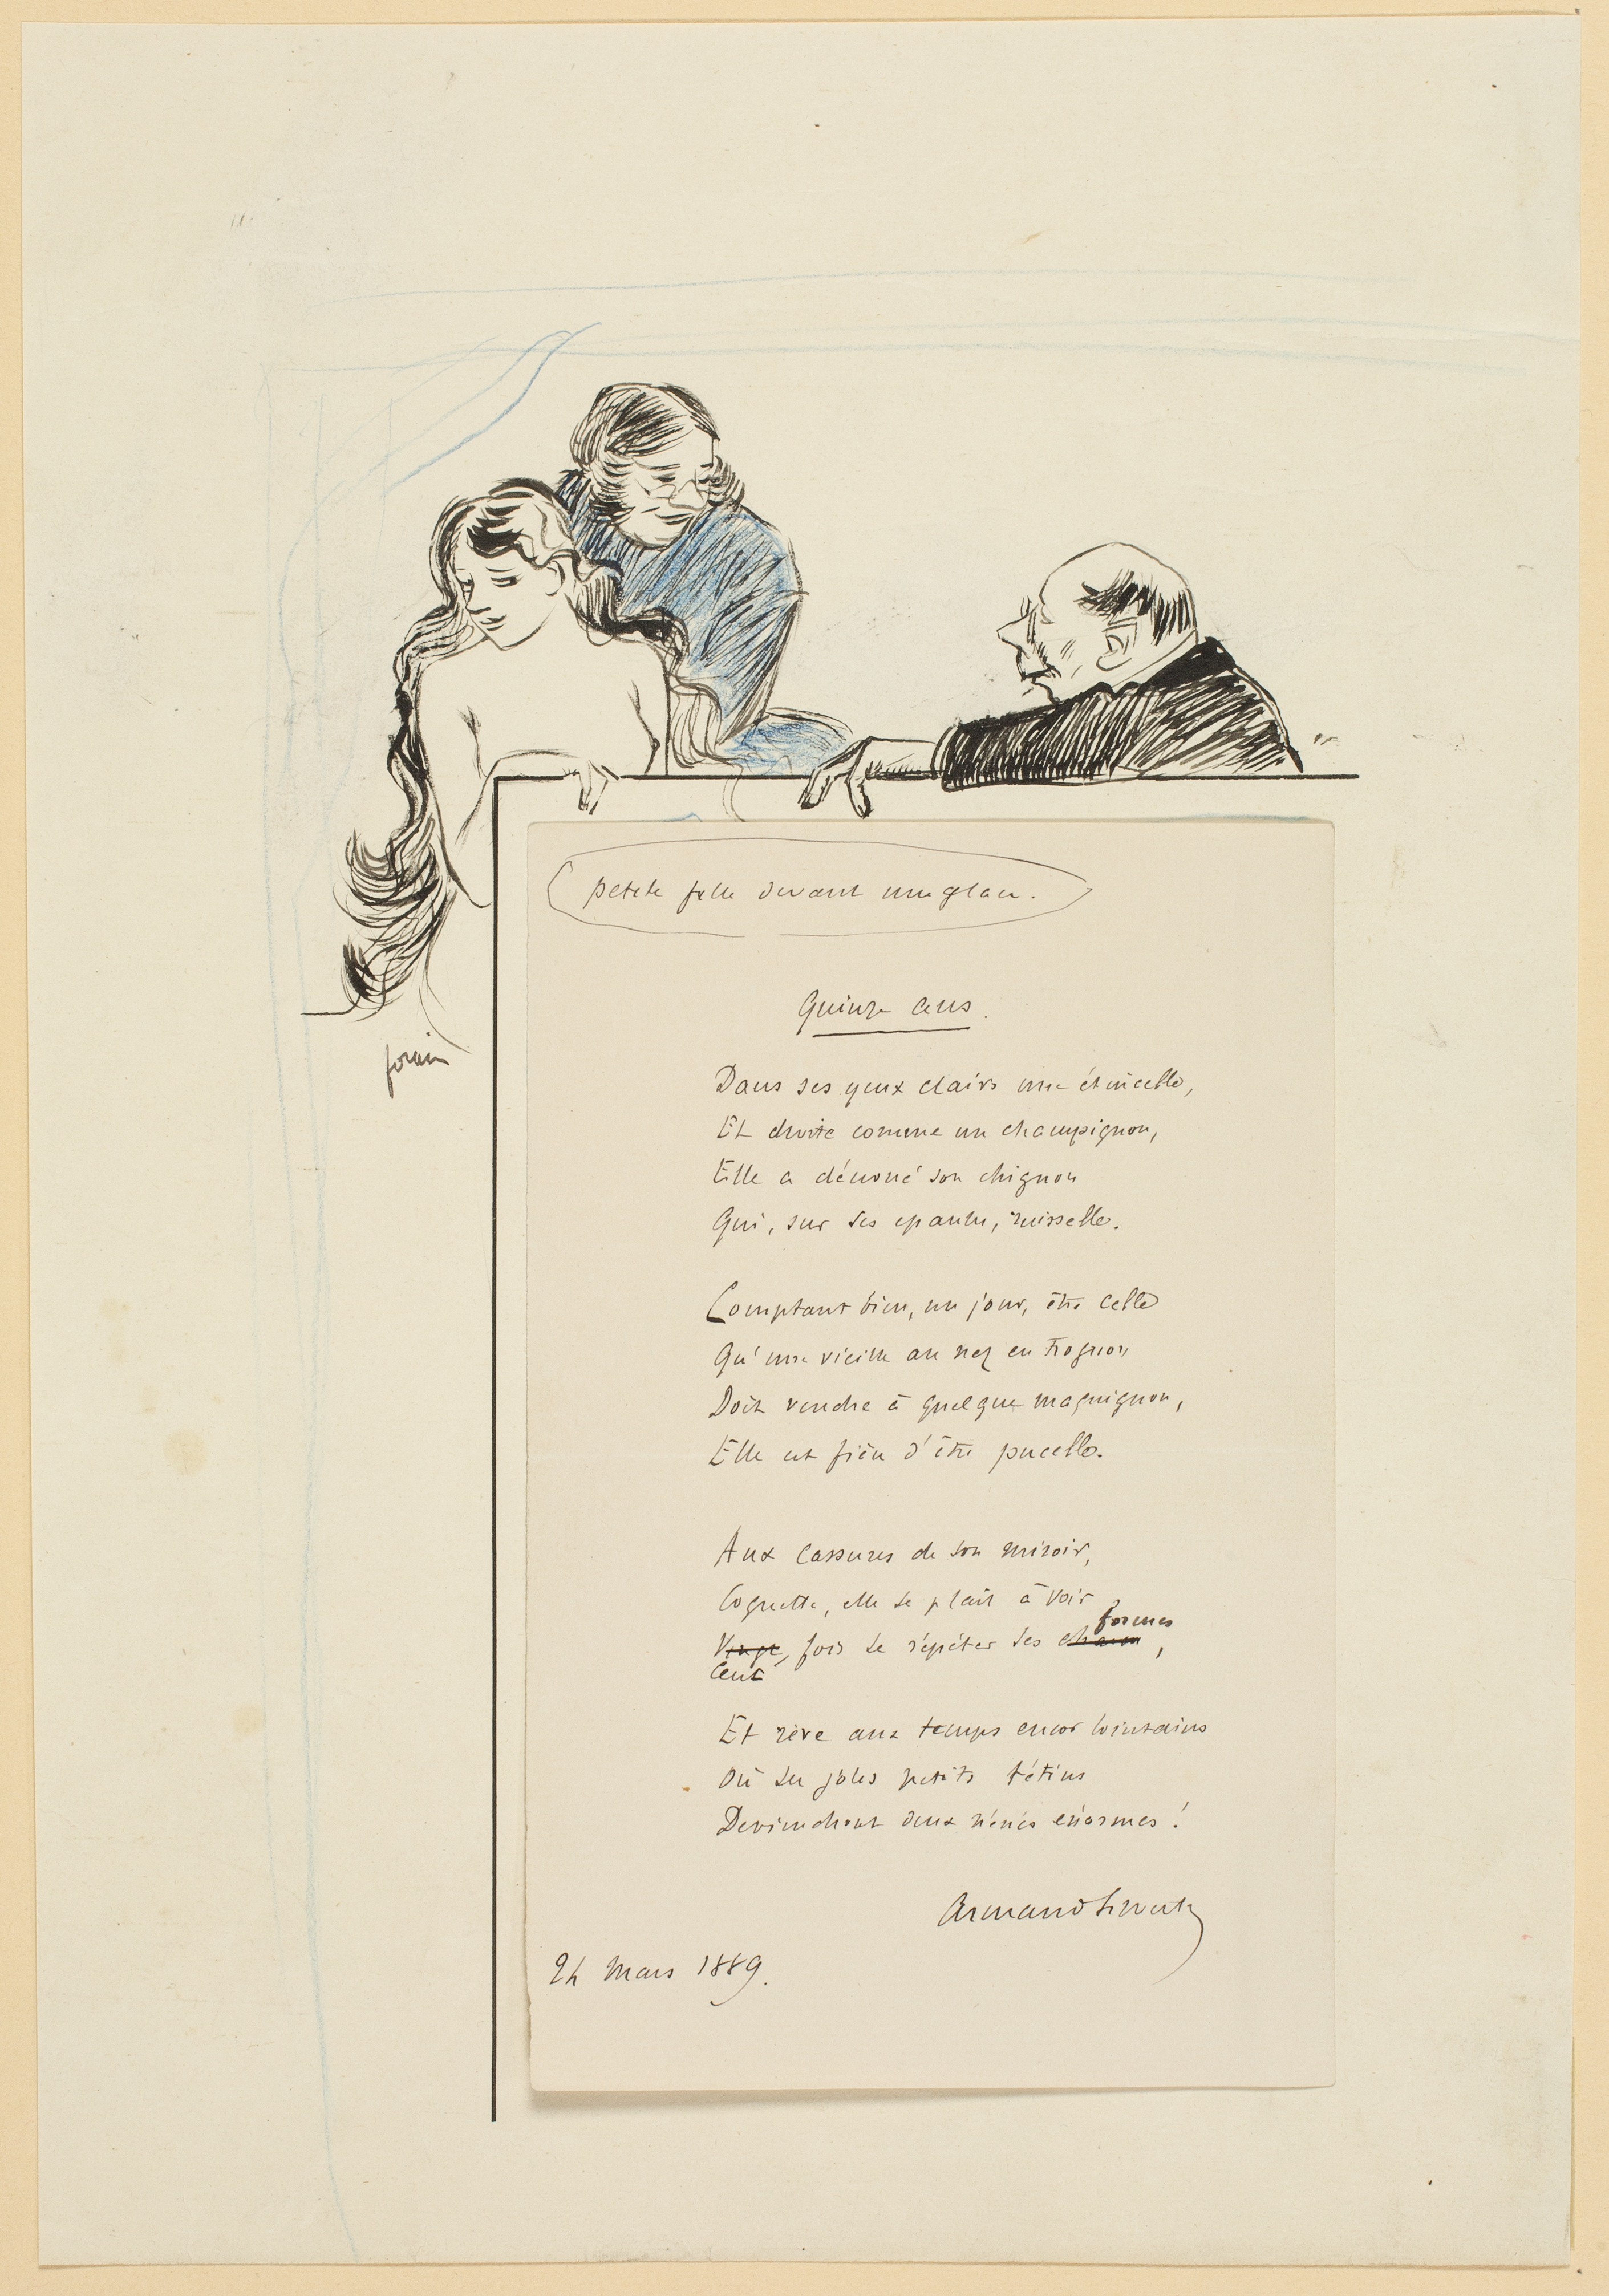 petite fille devant une glace.
Quinze ans.
Dans ses yeux clairs une étincelle,
Et droite comme un champignon,
Elle a dénoué son chignon
Qui, sur ses epaules, ruisselle.
Comptant bien, un jour, être celle
Qu'une vieille au nez en trognon
Doit vendre à quelque maquignon,
Elle est fière d'être pucelle.
Aux cassures de son miroir,
Coquette, elle se plait à voir
formes
Vingt, fois se répéter ses ,
Cent
Et rêve aux temps encor lointains
Où ses jolis petits tétins
Deviendront deux nénés énormes !
Armand
24 Mars 1889.
forain